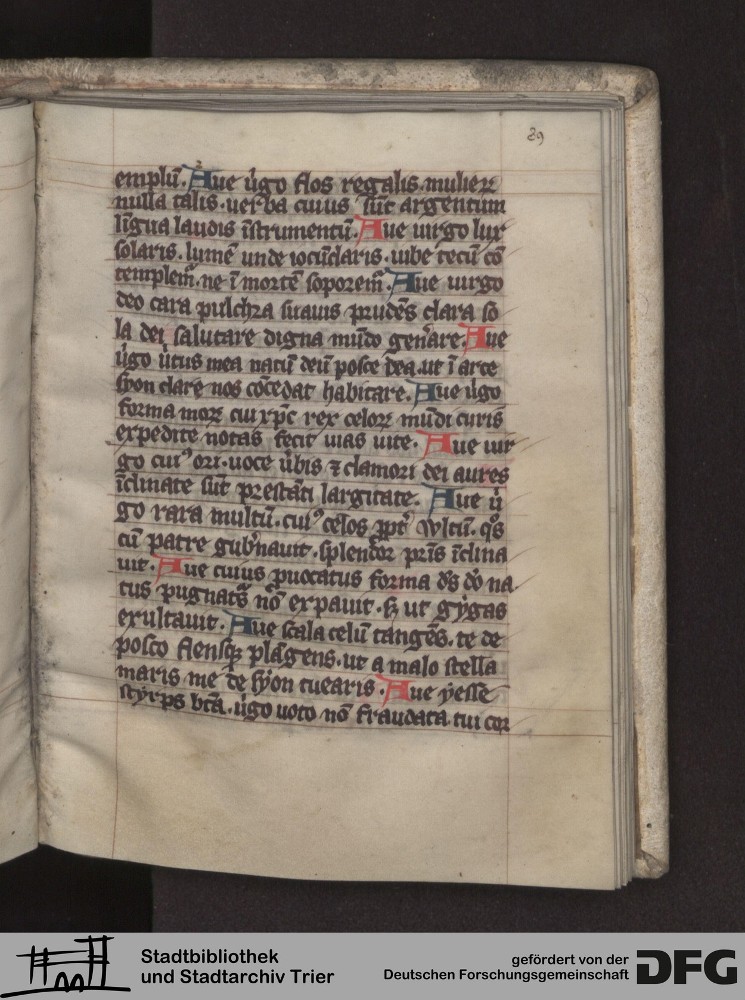 89
emplū. Aue ũgo flos regalis mulieꝝ
nulla talis. uerba cuius sūt argentum
lingua laudis īstrumentū. Aue uirgo lux
solaris. lumē unde iocūdaris. iube tecū cō
templem̄. ne ī mortē soporem̄. Aue uirgo
deo cara pulchra suauis prudēs clara so
la dei salutare digna mūdo gen̄are. Aue
ũgo ũtus mea natū deū posce dea. ut ī arce
syon clare nos cōcedat habitare. Aue ũgo
forma moꝝ cui xp̄c rex celoꝝ mūdi curis
expedite notas fecit uias uite. Aue uir
go cuiꝰ ori. uoce ũbis ⁊ clamori dei aures
īclinate sūt prestāti largitate. Aue ũ
go rara multū. cuiꝰ celos ꝓpt̉ vultū. q̊s
cū patre gub̉nauit. splendor pr̄is īclina
uit. Aue cuius ꝓuocatus forma d̄s dō na
tus pugnat̉s nō expauit. ꝫ ut gygas
exultauit. Aue scala celū tangēs. te de
posco flensqꝫ plāgens. ut a malo stella
maris me de syon tuearis. Aue yesse
styrps bt̄a. ũgo uoto nō fraudata. tui coꝝ
Stadtbibliothek
und Stadtarchiv Trier
gefördert von der
Deutschen Forschungsgemeinschaft
DFG